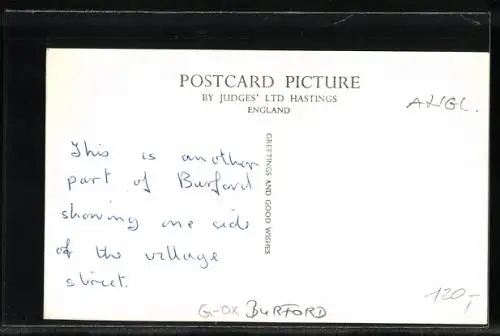 POSTCARD PICTURE
BY JUDGES' LTD HASTINGS
ENGLAND
ANGL.
GREETINGS AND GOOD WISHES
This is another
part of Burford
showing one side
of the village
street.
G-OX BURFORD
120,-